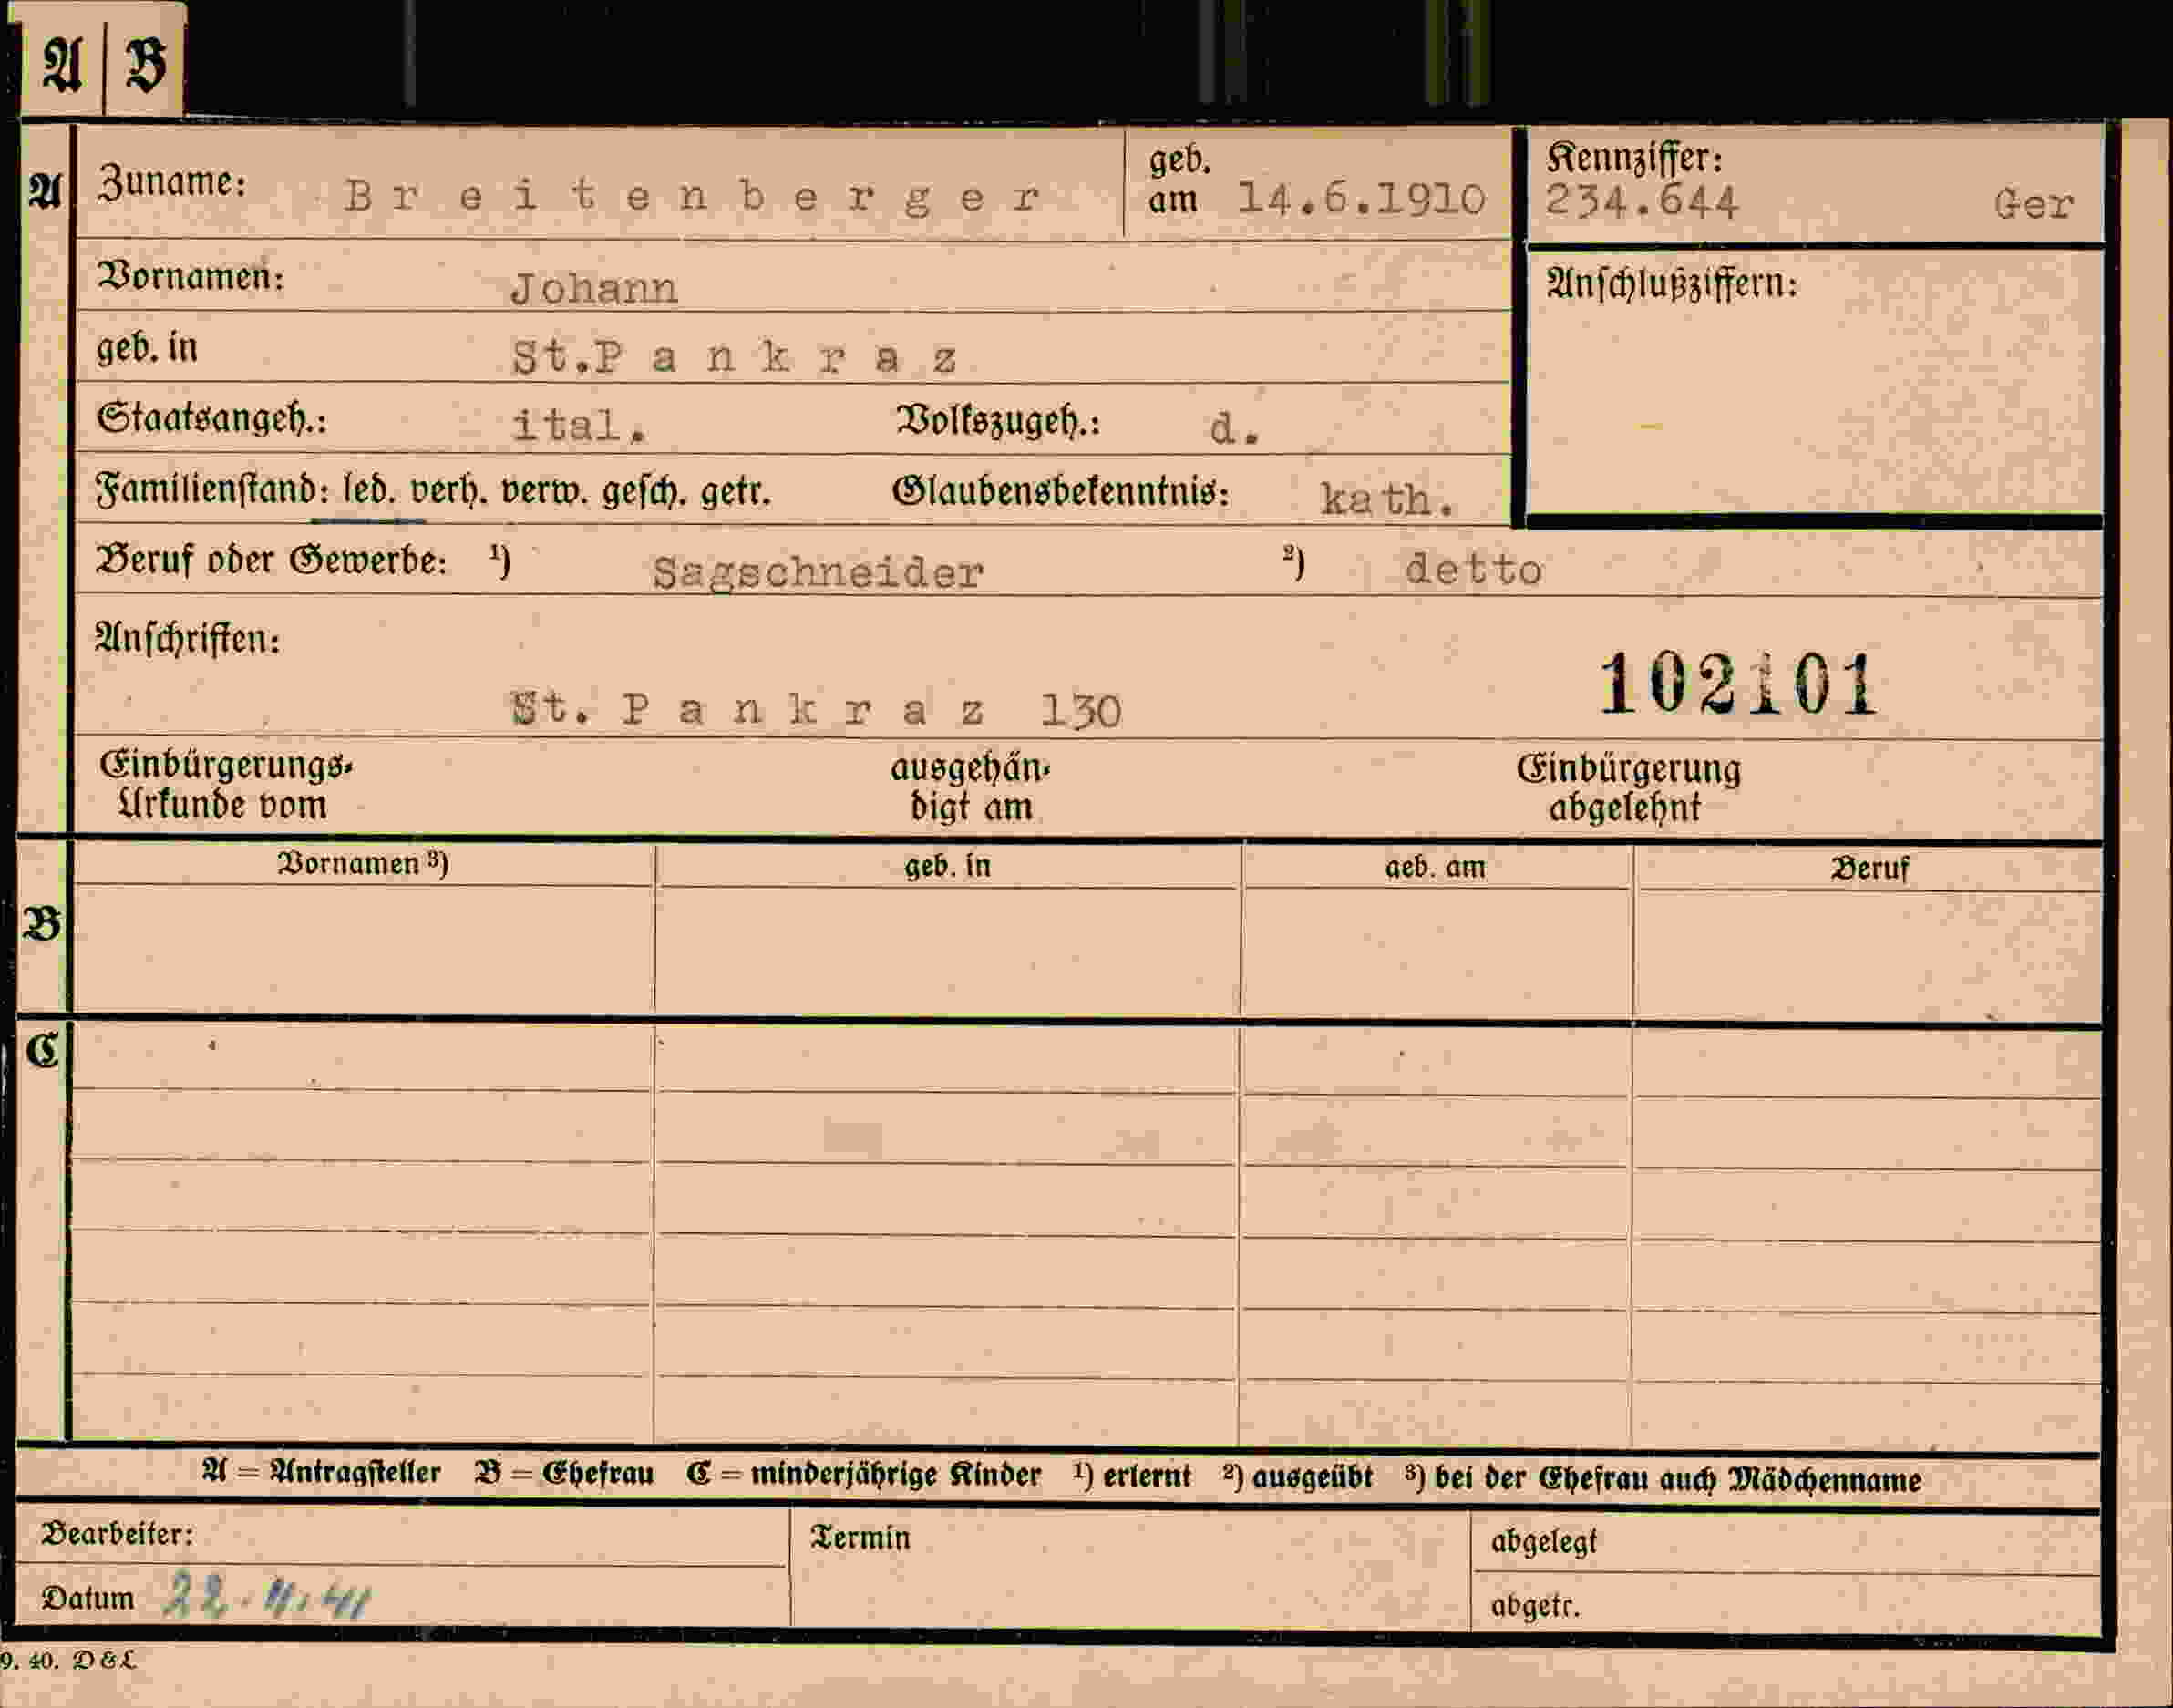 A | B
A Zuname: Breitenberger geb. am 14.6.1910 Kennziffer: 234.644 Ger
Vornamen: Johann Anschlußziffern:
geb. in St.Pankraz
Staatsangeh.: ital. Volkszugeh.: d.
Familienstand: led. verh. verw. gesch. getr. Glaubensbekenntnis: kath.
Beruf oder Gewerbe: 1) Sagschneider 2) detto
Anschriften:
102101
St. Pankraz 130
Einbürgerungs- ausgehän- Einbürgerung
Urkunde vom digt am abgelehnt
Vornamen 3) geb. in geb. am Beruf
B
C
A = Antragsteller B = Ehefrau C = minderjährige Kinder 1) erlernt 2) ausgeübt 3) bei der Ehefrau auch Mädchenname
Bearbeiter: Termin abgelegt
Datum 22.4.41 abgetr.
9. 40. D & L